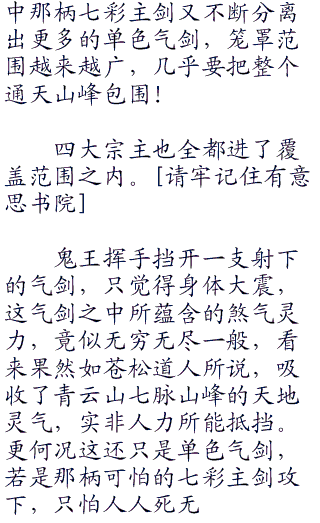 中那柄七彩主剑又不断分离
出更多的单色气剑，笼罩范
围越来越广，几乎要把整个
通天山峰包围！
四大宗主也全都进了覆
盖范围之内。[请牢记住有意
思书院]
鬼王挥手挡开一支射下
的气剑，只觉得身体大震，
这气剑之中所蕴含的煞气灵
力，竟似无穷无尽一般，看
来果然如苍松道人所说，吸
收了青云山七脉山峰的天地
灵气，实非人力所能抵挡。
更何况这还只是单色气剑，
若是那柄可怕的七彩主剑攻
下，只怕人人死无